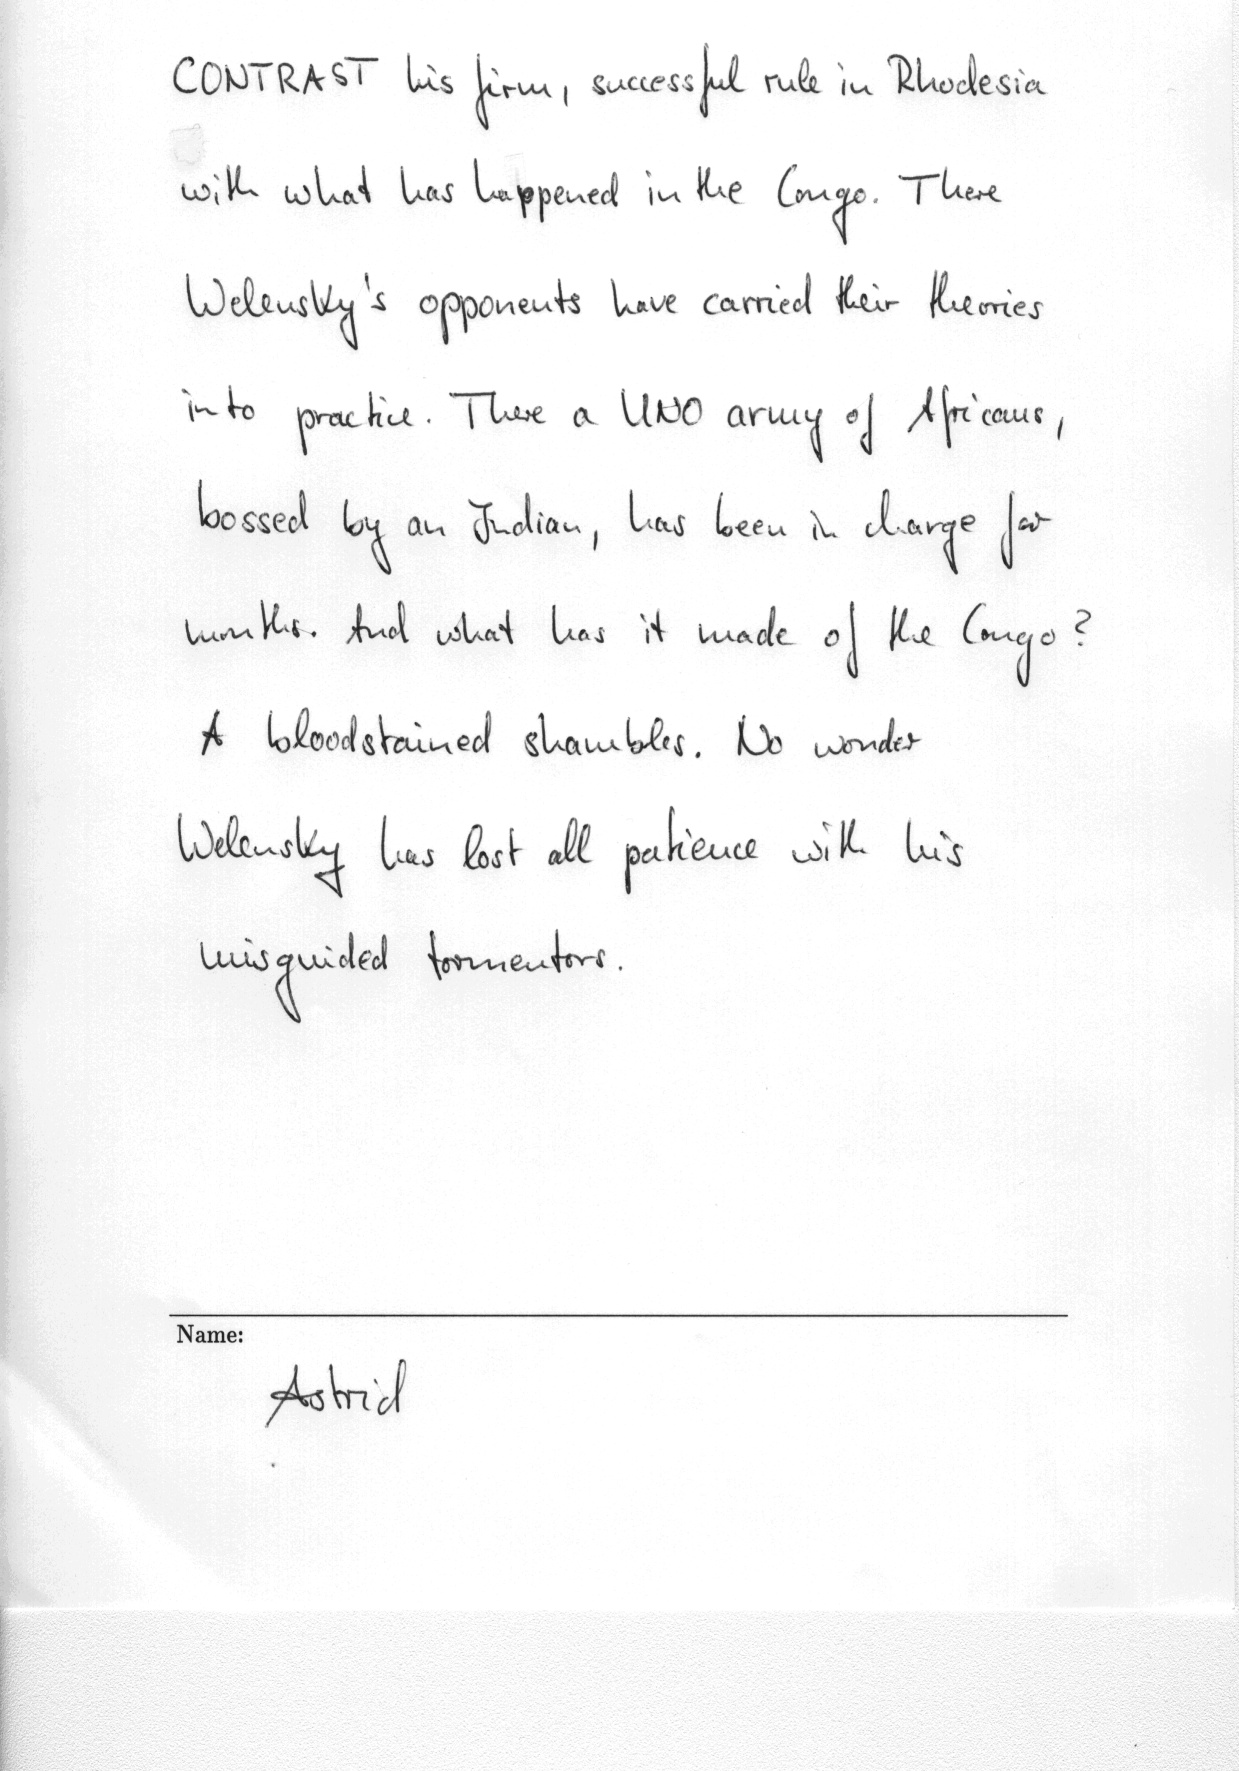 CONTRAST his firm, successful rule in Rhodesia
with what has happened in the Congo. There
Welensky's opponents have carried their theories
into practice. There a UNO army of Africans,
bossed by an Indian, has been in charge for
months. And what has it made of the Congo?
A bloodstained shambles. No wonder
Welensky has lost all patience with his
misguided tormentors.
Name:
Astrid